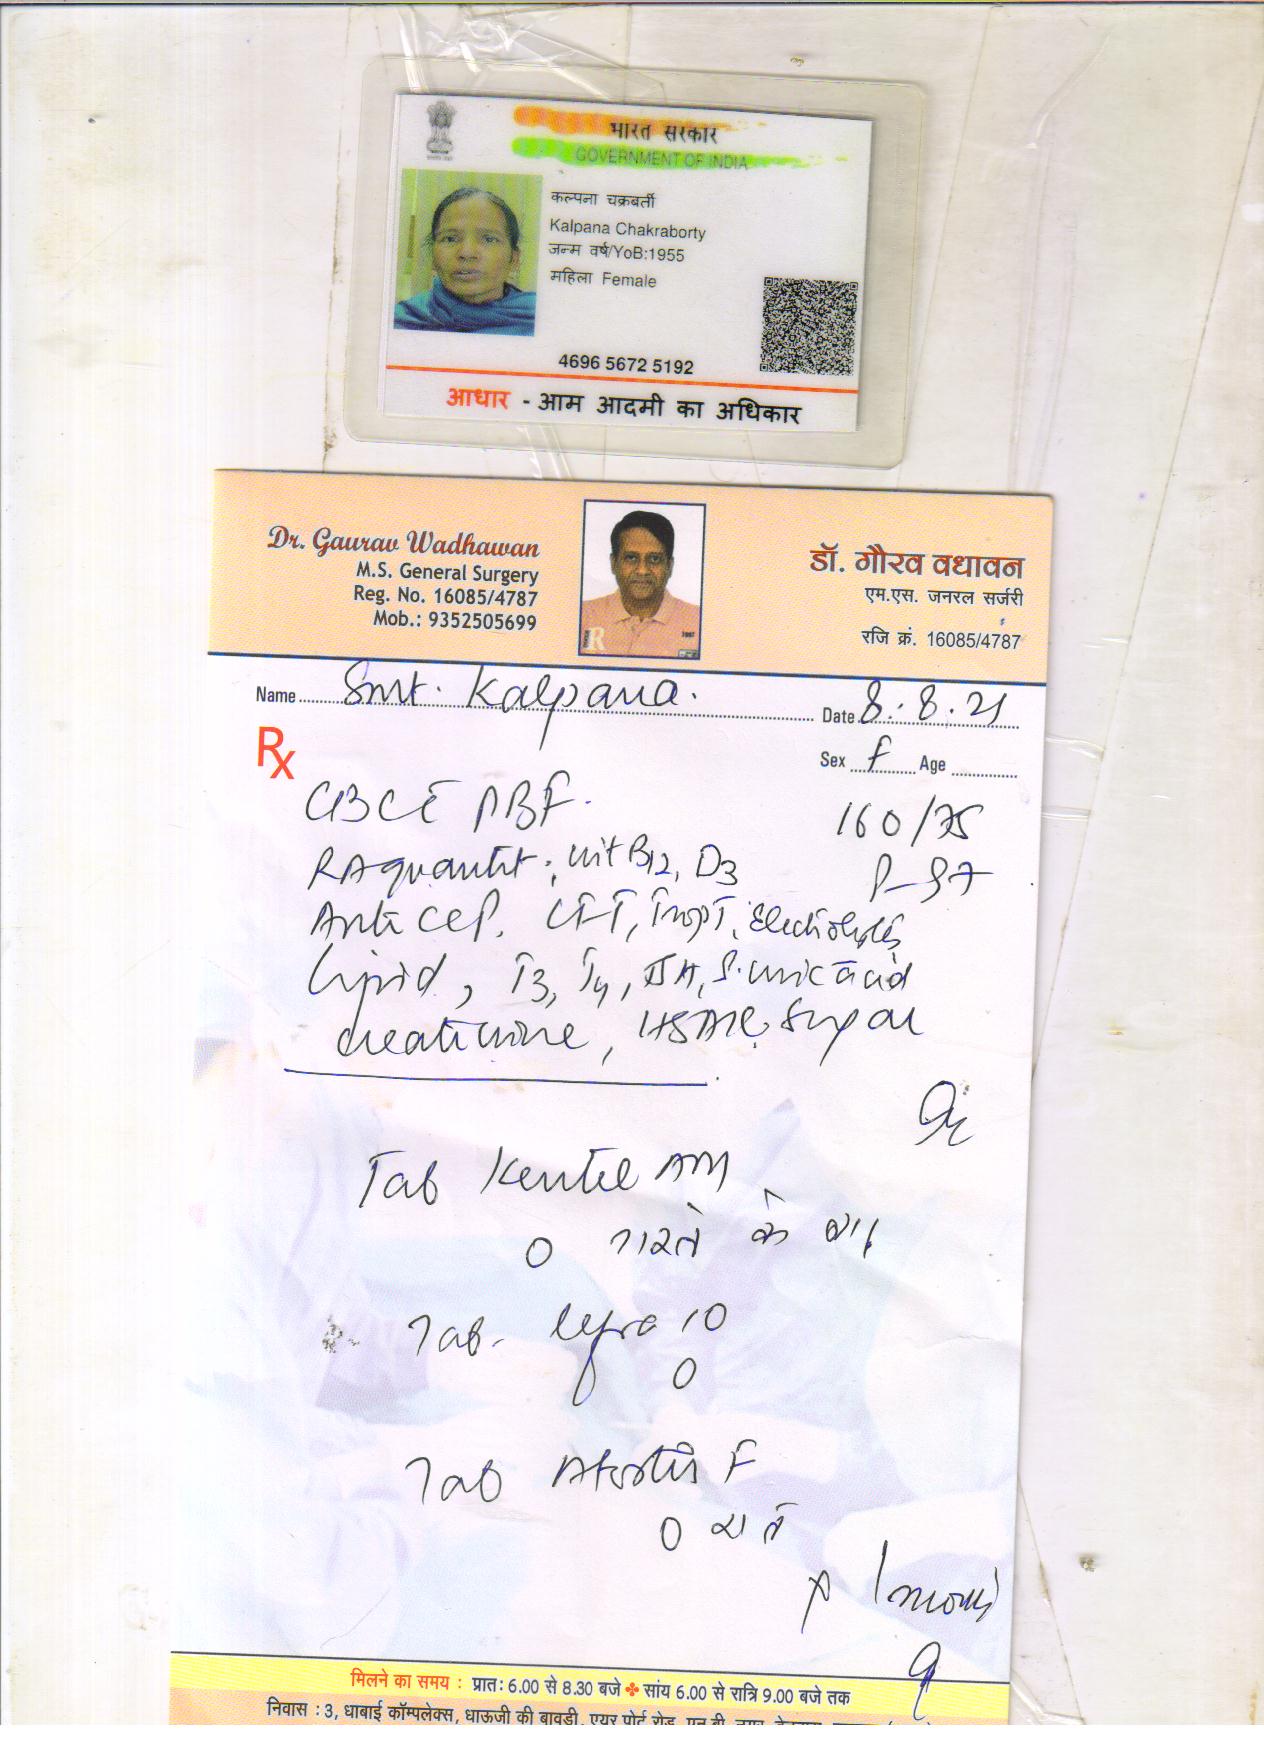 भारत सरकार
GOVERNMENT OF INDIA
कल्पना चक्रबर्ती
Kalpana Chakraborty
जन्म वर्ष/YoB:1955
महिला Female
4696 5672 5192
आधार - आम आदमी का अधिकार
Dr. Gaurav Wadhawan
M.S. General Surgery
Reg. No. 16085/4787
Mob.: 9352505699
डॉ. गौरव वधावन
एम.एस. जनरल सर्जरी
रजि क्रं. 16085/4787
Name Smt. Kalpana.
Date 8.8.21
Sex f Age
Rx
CBC PBF.
160/75
RA quantit, vit B12, D3
P-97
Anti CCP. Electrolytes
Lipid, T3, T4, TSH, S. uric acid
creatinine, Sugar
Tab AM
0 के बाद
Tab. 10
0
Tab F
0 रात
x 1 month
मिलने का समय : प्रातः 6.00 से 8.30 बजे सांय 6.00 से रात्रि 9.00 बजे तक
निवास : 3, धाबाई कॉम्पलेक्स, धाऊजी की बावडी, एयर पोर्ट रोड,